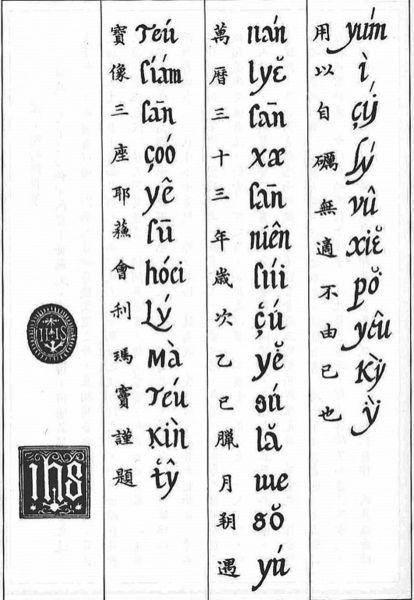 用以自礪無適不由已也
yúm ì çú lý vû xiĕ pŏ yêu kỳ ỳ
萬曆三十三年歲次乙巳臘月朔遇
uán lyĕ sān xæ sān niên súi çú yĕ sú lă iue sŏ yú
寶像三座耶蘓會利瑪竇謹題
siám sān çoó yê sū hóei Lý mà teú kìn tŷ
IHS
ihs